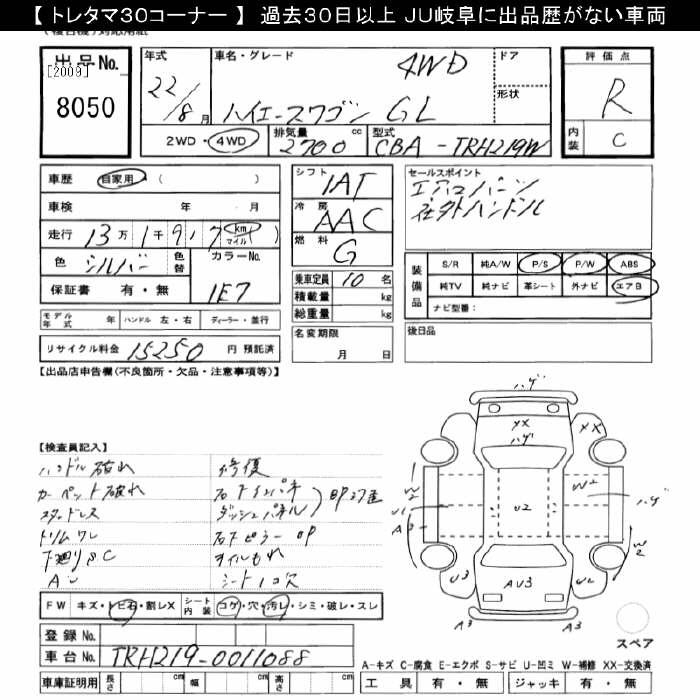 【 トレタマ30コーナー 】 過去30日以上 JU岐阜に出品歴がない車両
出品No. [2009] 8050
年式 22/8月
車名・グレード 4WD ハイエースワゴン GL
ドア 形状
2WD・4WD 排気量 2700 cc 型式 CBA-TRH219W
評価点 R
内装 C
車歴 自家用・( )
車検 年・月
走行 13万1千917 (km マイル)
色 シルバー 色替 カラーNo. 1E7
保証書 有・無
モデル年式 年 ハンドル 左・右 ディーラー・並行
リサイクル料金 15250 円 預託済
シフト IAT
冷房 AAC
燃料 G
乗車定員 10 名
積載量 kg
総重量 kg
名変期限 月 日
セールスポイント
エアロパーツ
社外ハンドル
装備品 S/R 純A/W P/S P/W ABS
純TV 純ナビ 革シート 外ナビ エアB
ナビ型番:
後日品
【出品店申告欄(不良箇所・欠品・注意事項等)】
【検査員記入】
ハンドル破れ 修復
カーペット破れ
スタッドレス ダッシュパネル
トリムワレ
下廻りSC オイルもれ
AU シート1コ穴
FW キズ・トビ石・割レX シート内装 コゲ・穴・汚レ・シミ・破レ・スレ
登録No.
車台No. TRH219-0011088
車庫証明用 長さ cm 幅 cm 高さ cm
ハゲ
XX XX
ハゲ
W2 W2 ハゲ
U1 U2
A3 W2
U3 AU3 U2
A3 A3
スペア
A-キズ C-腐食 E-エクボ S-サビ U-凹ミ W-補修 XX-交換済
工具 有・無 ジャッキ 有・無